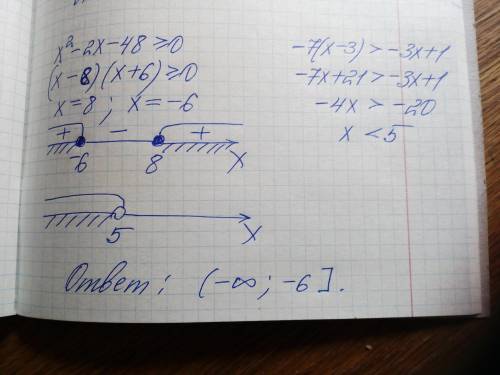 x²-2x-48≥0
(x-8)(x+6)≥0
x=8; x=-6
+ - +
-6 8 x
-7(x-3)>-3x+1
-7x+21>-3x+1
-4x>-20
x<5
5 x
Ответ: (-∞; -6].